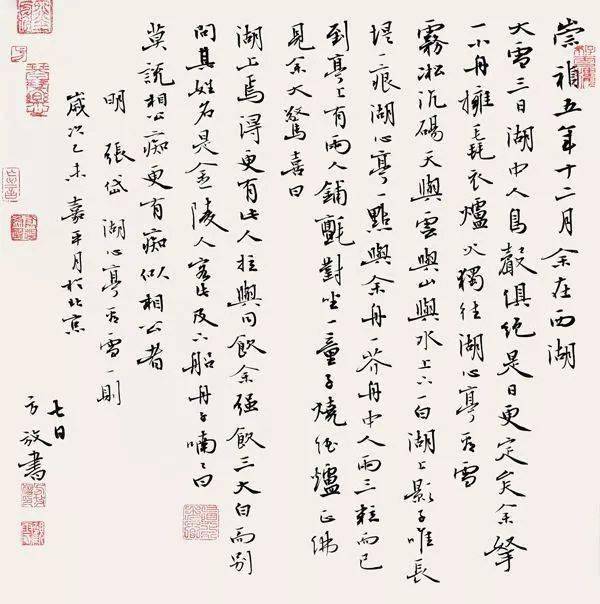 崇禎五年十二月余在西湖
大雪三日湖中人鳥聲俱絕是日更定矣余拏
一小舟擁毳衣爐火獨往湖心亭看雪
霧凇沆碭天與雲與山與水上下一白湖上影子唯長
堤一痕湖心亭一點與余舟一芥舟中人兩三粒而已
到亭上有兩人鋪氈對坐一童子燒酒爐正沸
見余大驚喜曰
湖上焉得更有此人拉與同飲余強飲三大白而別
問其姓名是金陵人客此及下船舟子喃々曰
莫說相公癡更有癡似相公者
明 張岱 湖心亭看雪一則
歲次乙未嘉平月於北京
七日
方放書